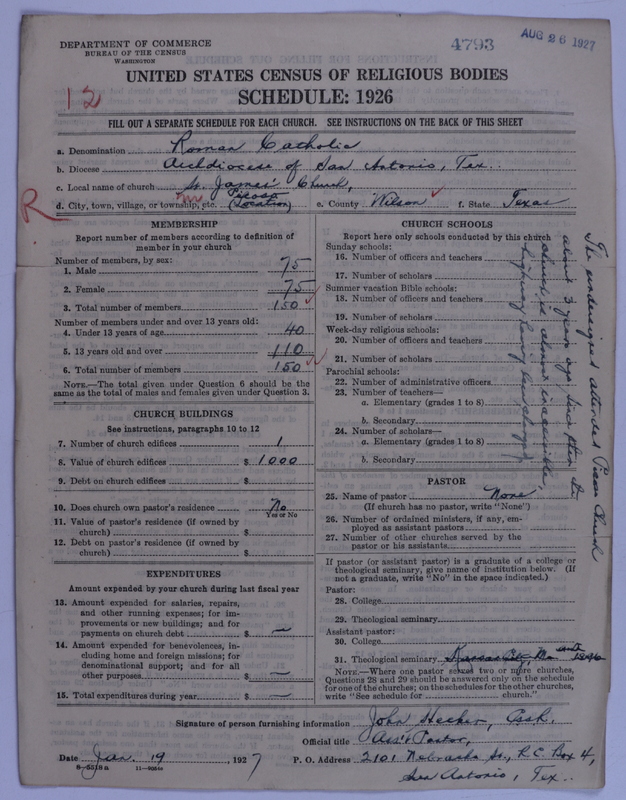 DEPARTMENT OF COMMERCE
BUREAU OF THE CENSUS
WASHINGTON
4793
AUG 26 1927
UNITED STATES CENSUS OF RELIGIOUS BODIES
SCHEDULE: 1926
12
FILL OUT A SEPARATE SCHEDULE FOR EACH CHURCH. SEE INSTRUCTIONS ON THE BACK OF THIS SHEET
a. Denomination Roman Catholic
b. Diocese Archdiocese of San Antonio, Tex.
c. Local name of church St. James' Church,
d. City, town, village, or township, etc. (Location) e. County Wilson f. State Texas
R
MEMBERSHIP
Report number of members according to definition of
member in your church
Number of members, by sex:
1. Male 75
2. Female 75
3. Total number of members 150
Number of members under and over 13 years old:
4. Under 13 years of age 40
5. 13 years old and over 110
6. Total number of members 150
NOTE.—The total given under Question 6 should be
same as the total of males and females given under Question 3.
CHURCH BUILDINGS
See instructions, paragraphs 10 to 12
7. Number of church edifices 1
8. Value of church edifices $ 1000
9. Debt on church edifices $
10. Does church own pastor's residence No
Yes or No
11. Value of pastor's residence (if owned by
church) $
12. Debt on pastor's residence (if owned by
church) $
EXPENDITURES
Amount expended by your church during last fiscal year
13. Amount expended for salaries, repairs,
and other running expenses; for im-
provements or new buildings; and for
payments on church debt $ —
14. Amount expended for benevolences, in-
cluding home and foreign missions; for
denominational support; and for all
other purposes $ —
15. Total expenditures during year $ —
CHURCH SCHOOLS
Report here only schools conducted by this church
Sunday schools:
16. Number of officers and teachers
17. Number of scholars
Summer vacation Bible schools:
18. Number of officers and teachers
19. Number of scholars
Week-day religious schools:
20. Number of officers and teachers
21. Number of scholars
Parochial schools:
22. Number of administrative officers
23. Number of teachers—
a. Elementary (grades 1 to 8)
b. Secondary
24. Number of scholars—
a. Elementary (grades 1 to 8)
b. Secondary
The undersigned attended Church
about 3 years ago since then the
church is almost inaccessible,
highway having been changed
PASTOR
25. Name of pastor None
(If church has no pastor, write "None")
26. Number of ordained ministers, if any, em-
ployed as assistant pastors
27. Number of other churches served by the
pastor or his assistants
If pastor (or assistant pastor) is a graduate of a college or
theological seminary, give name of institution below. (If
not a graduate, write "No" in the space indicated.)
Pastor:
28. College
29. Theological seminary
Assistant pastor:
30. College
31. Theological seminary Kansas City, Mo.
NOTE.—Where one pastor served two or more churches,
Questions 28 and 29 should be answered only on the schedule
for one of the churches; on the schedules for the other churches,
write "See schedule for church."
Signature of person furnishing information John Hecker,
Official title Ass't Pastor,
Date Jan. 19, 1927 P. O. Address 2101 Nebraska St., R.C. Box 4,
8—5518a 11—9054
San Antonio, Tex.